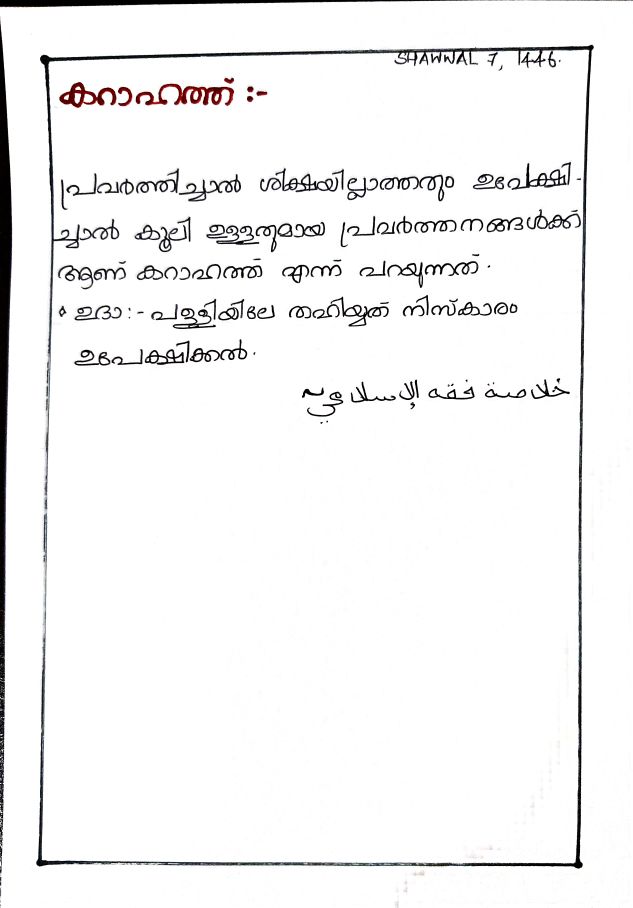 SHAWWAL 7, 1446.
കറാഹത്ത് :-
പ്രവർത്തിച്ചാൽ ശിക്ഷയില്ലാത്തതും ഉപേക്ഷി-
ച്ചാൽ കൂലി ഉള്ളതുമായ പ്രവർത്തനങ്ങൾക്ക്
ആണ് കറാഹത്ത് എന്ന് പറയുന്നത്.
ഉദാ:- പള്ളിയിലേ തഹിയ്യത് നിസ്കാരം
ഉപേക്ഷിക്കൽ.
خلاصة فقه الإسلامي